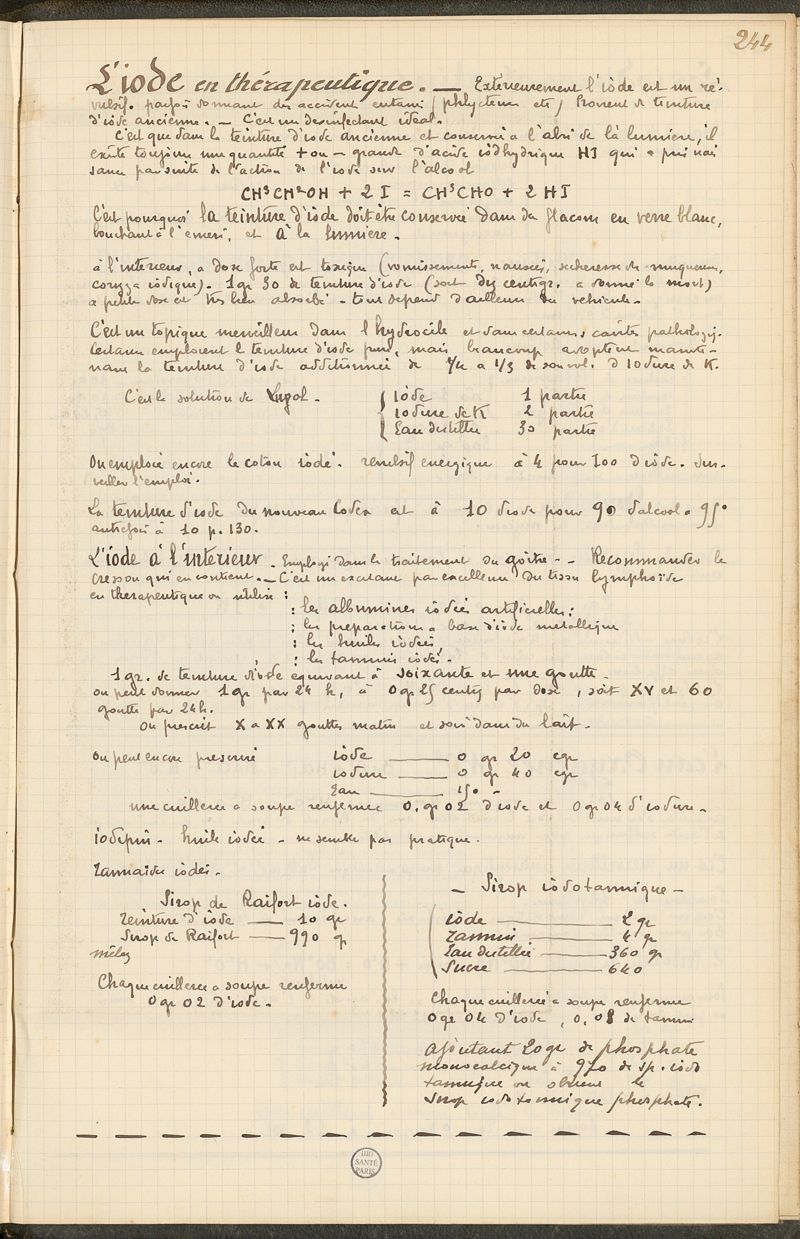 244
L'iode en thérapeutique. — Extérieurement l'iode est un ré-
vulsif. parfois donnant des accidents cutanés (phlyctènes etc) Provient de teinture
d'iode ancienne. — C'est un désinfectant idéal.
C'est que dans la teinture d'iode ancienne et conservée à l'abri de la lumière, il
existe toujours une quantité + ou - grande d'acide iodhydrique HI qui a pris nais
sance par suite de l'action de l'iode sur l'alcool
CH³CH²OH + 2 I = CH³CHO + 2 HI
C'est pourquoi la teinture d'iode doit être conservée dans des flacons en verre blanc,
bouchant à l'émeri, et à la lumière.
à l'intérieur, à dose forte est toxique (vomissements, nausées, sécheresse des muqueuses,
coryza iodique). 1 gr 30 de teinture d'iode (soit dix centigr. a donné la mort)
à petite dose est très bien absorbé - tout dépend d'ailleurs du véhicule.
C'est un topique merveilleux dans l'hydrocèle et dans certaines cavités pathologiq.
Certains emploient la teinture d'iode pure, mais beaucoup adoptent mainte-
nant la teinture d'iode additionnée de à 1/3 de son vol. d'Iodure de K.
C'est la solution de Lugol. { Iode 1 partie
Iodure de K 2 partie
Eau distillée 30 partie
On emploie encore le coton iodé. révulsif énergique à 4 pour 100 d'iode. Sur-
veiller l'emploi.
La teinture d'iode du nouveau Codex est à 10 d'iode pour 90 d'alcool à 95°
autrefois à 10 p. 130.
L'iode à l'intérieur. Employé dans le traitement du goitre - - Recommander le
cresson qui en contient. — C'est un excitant par excellence du tissu lymphoïde
en thérapeutique on utilise :
: les albumines iodées artificielles;
: les préparations à base d'iode métallique
: les huiles iodées,
: les tannins iodés.
1 gr. de teinture d'iode équivaut à soixante et une goutte.
on peut donner 1 gr par 24 h, à 0 gr 25 centig par dose, soit XV et 60
gouttes par 24 h.
On prescrit X à XX gouttes matin et soir dans du lait.
On peut encore prescrire iode — 0 gr 20 cgr
iodure — 0 gr 40 cgr
Eau — 150 -
une cuillerée à soupe renferme 0, gr 02 d'iode et 0 gr 04 d'iodure.
Iodipin - huile iodée - ne semble pas pratique.
Tannoides iodés.
Sirop de Raifort iodé.
Teinture d'iode — 10 gr
Sirop de Raifort — 990 gr
mêlez
Chaque cuillerée à soupe renferme
0 gr 02 d'iode.
— Sirop iodotannique —
iode — 2 gr
Tannin — 4 gr
Eau distillée — 360 gr
Sucre — 640
Chaque cuillerée à soupe renferme
0 gr 04 d'iode, 0,08 de tannin
Ajoutant 20 gr de phosphate
monocalcique à 970 de sp. iodo
tannique on obtient le
Sirop iodo tannique phosphaté.
BIU
SANTÉ
PARIS